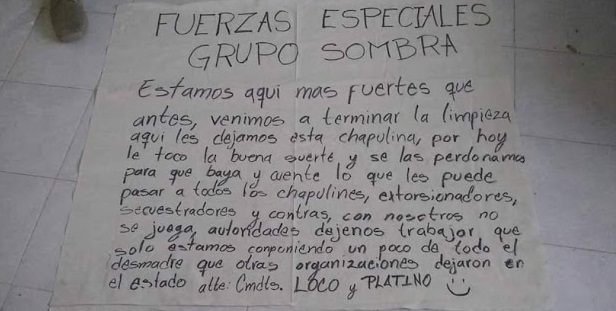 FUERZAS ESPECIALES
GRUPO SOMBRA
Estamos aqui mas fuertes que
antes, venimos a terminar la limpieza
aqui les dejamos esta chapulina, por hoy
le toco la buena suerte y se las perdonamos
para que baya y cuente lo que les puede
pasar a todos los chapulines, extorsionadores,
secuestradores y contras, con nosotros no
se juega, autoridades dejenos trabajar, que
solo estamos conponiendo un poco de todo el
desmadre que otras organizaciones dejaron en
el estado atte: Cmdts. LOCO y PLATINO